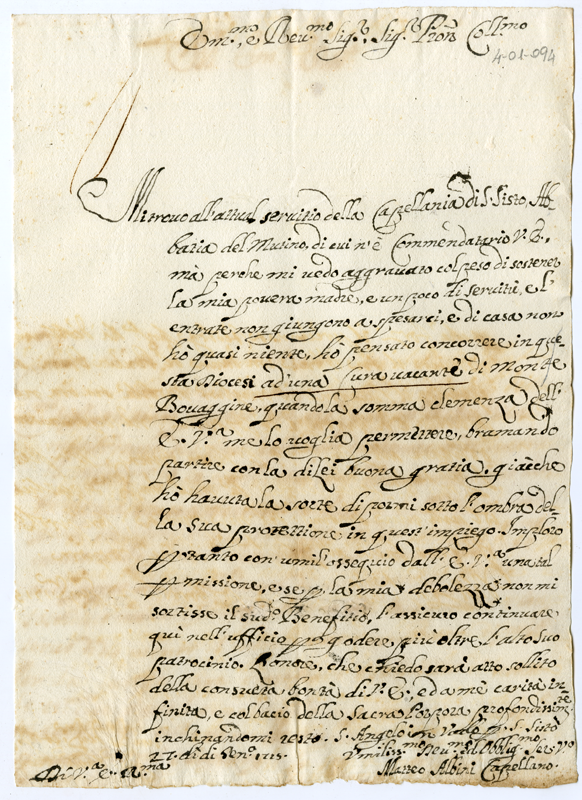 Em.mo, e Rev.mo Sig.r, Sig.r Pron Coll.mo
4-01-094
Mi trovo all'attual servitio della Cappellania di S. Sisto, Ab-
batia del Mutino, di cui n'è Commendatario V. E.,
mà perche mi vedo aggravato col peso di sostener
la mia povera madre, e un poco di servitù, e l'
entrate non giungono a spesarci, e di casa non
hò quasi niente, hò pensato concorrere in que
sta Diocesi ad'una Cura vacante di Monte
Bovaggine, quando la somma clemenza dell'
E. V.a me lo voglia permettere, bramando
partire con la di lei buona gratia, giàche
hò havuta la sorte di pormi sotto l'ombra del-
la sua protettione in quest'impiego. Imploro
ptanto con umil'ossequio dall'E. V.a una tal
pmissione, e se p la mia debolezza non mi
sortisse il sud.o Benefitio, l'assicuro continuare
quì nell'ufficio p godere più oltre l'alto suo
patrocinio. L'onore, che chiedo sarà atto sollito
della consueta bontà di V. E., ed a mè carità in-
finita, e col bacio della Sacra Porpora profondissim.te
inchinandomi resto. S. Angelo in Vado p S. Sisto
27. di di Gen.o 1715
Di V.a E. R.ma
Vmiliss.mo Dev.mo ed Obblig. Ser. V.o
Matteo Albini Cappellano.